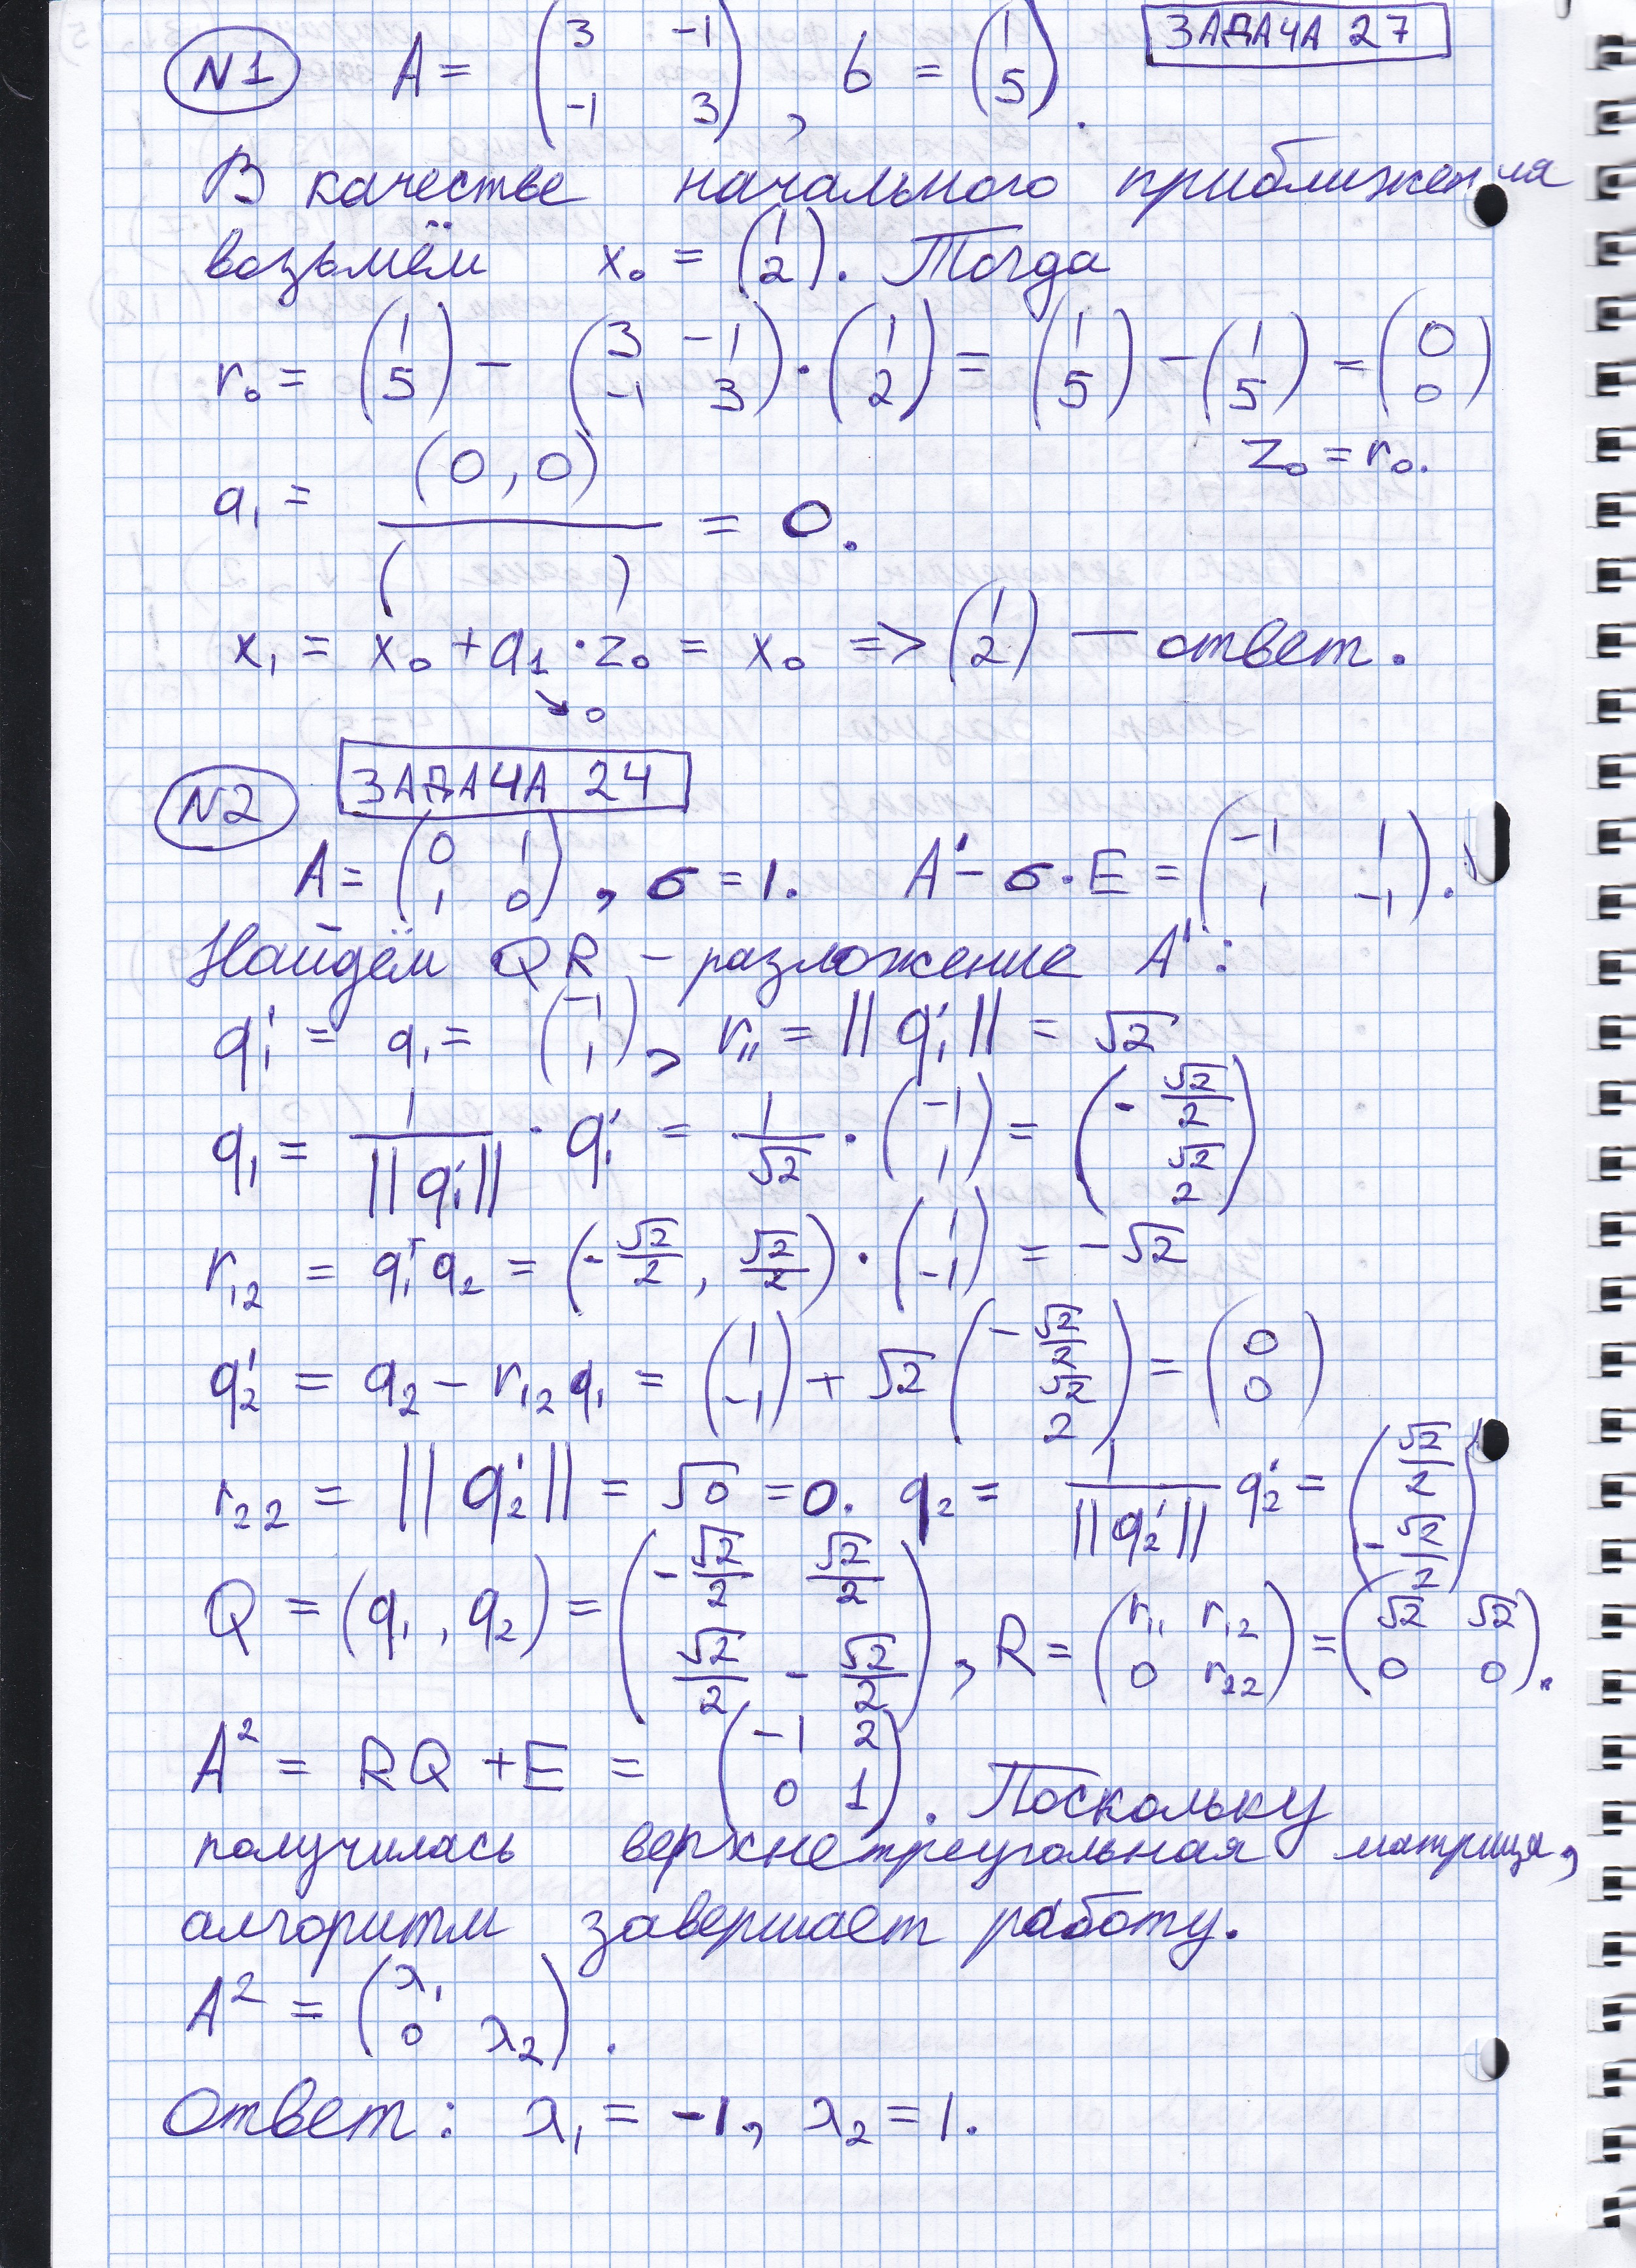 N1 A = (3 -1; -1 3), b = (1; 5). ЗАДАЧА 27
В качестве начального приближения
возьмём x₀ = (1; 2). Тогда
r₀ = (1; 5) - (3 -1; -1 3) · (1; 2) = (1; 5) - (1; 5) = (0; 0)
z₀ = r₀.
a₁ = (0, 0) / ( ) = 0.
x₁ = x₀ + a₁ · z₀ = x₀ => (1; 2) — ответ.
↘ 0
N2 ЗАДАЧА 24
A = (0 1; 1 0), σ = 1. A¹ - σ·E = (-1 1; 1 -1).
Найдём QR - разложение A¹:
q₁' = a₁ = (-1; 1), r₁₁ = ||q₁'|| = √2
q₁ = 1/||q₁'|| · q₁' = 1/√2 · (-1; 1) = (-√2/2; √2/2)
r₁₂ = q₁ᵀ a₂ = (-√2/2, √2/2) · (1; -1) = -√2
q₂' = a₂ - r₁₂ q₁ = (1; -1) + √2 (-√2/2; √2/2) = (0; 0)
r₂₂ = ||q₂'|| = √0 = 0. q₂ = 1/||q₂'|| q₂' = (√2/2; -√2/2)
Q = (q₁, q₂) = (-√2/2 √2/2; √2/2 -√2/2), R = (r₁₁ r₁₂; 0 r₂₂) = (√2 √2; 0 0).
A² = RQ + E = (-1 2; 0 1). Поскольку
получилась верхнетреугольная матрица,
алгоритм завершает работу.
A² = (λ₁; 0 λ₂).
Ответ: λ₁ = -1, λ₂ = 1.